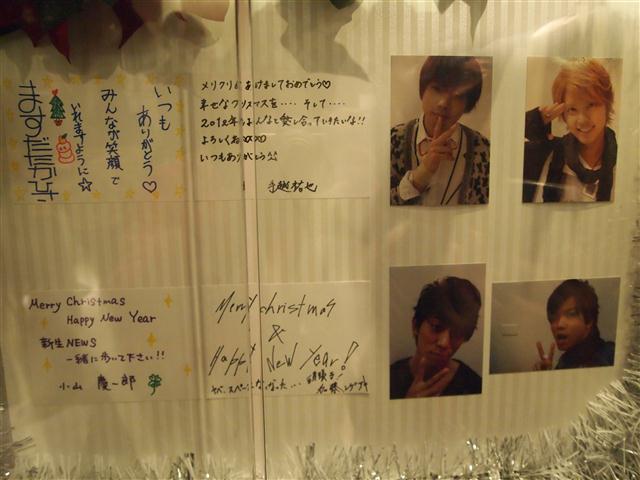 いつも
ありがとう♡
みんなが笑顔で
いれますように☆
ますだたかひさ
メリクリ&あけましておめでとう♡
幸せなクリスマスを‥‥そして‥‥
2012年もみんなと愛し合っていきたいな!!
よろしくね♡♡
いつもありがとう
手越祐也
Merry Christmas
Happy New Year
新生NEWS
一緒に歩いて下さい!!
小山慶一郎
Merry christmas
&
Happy New Year!
ヤバ、スペースなくなった…
加藤シゲアキ